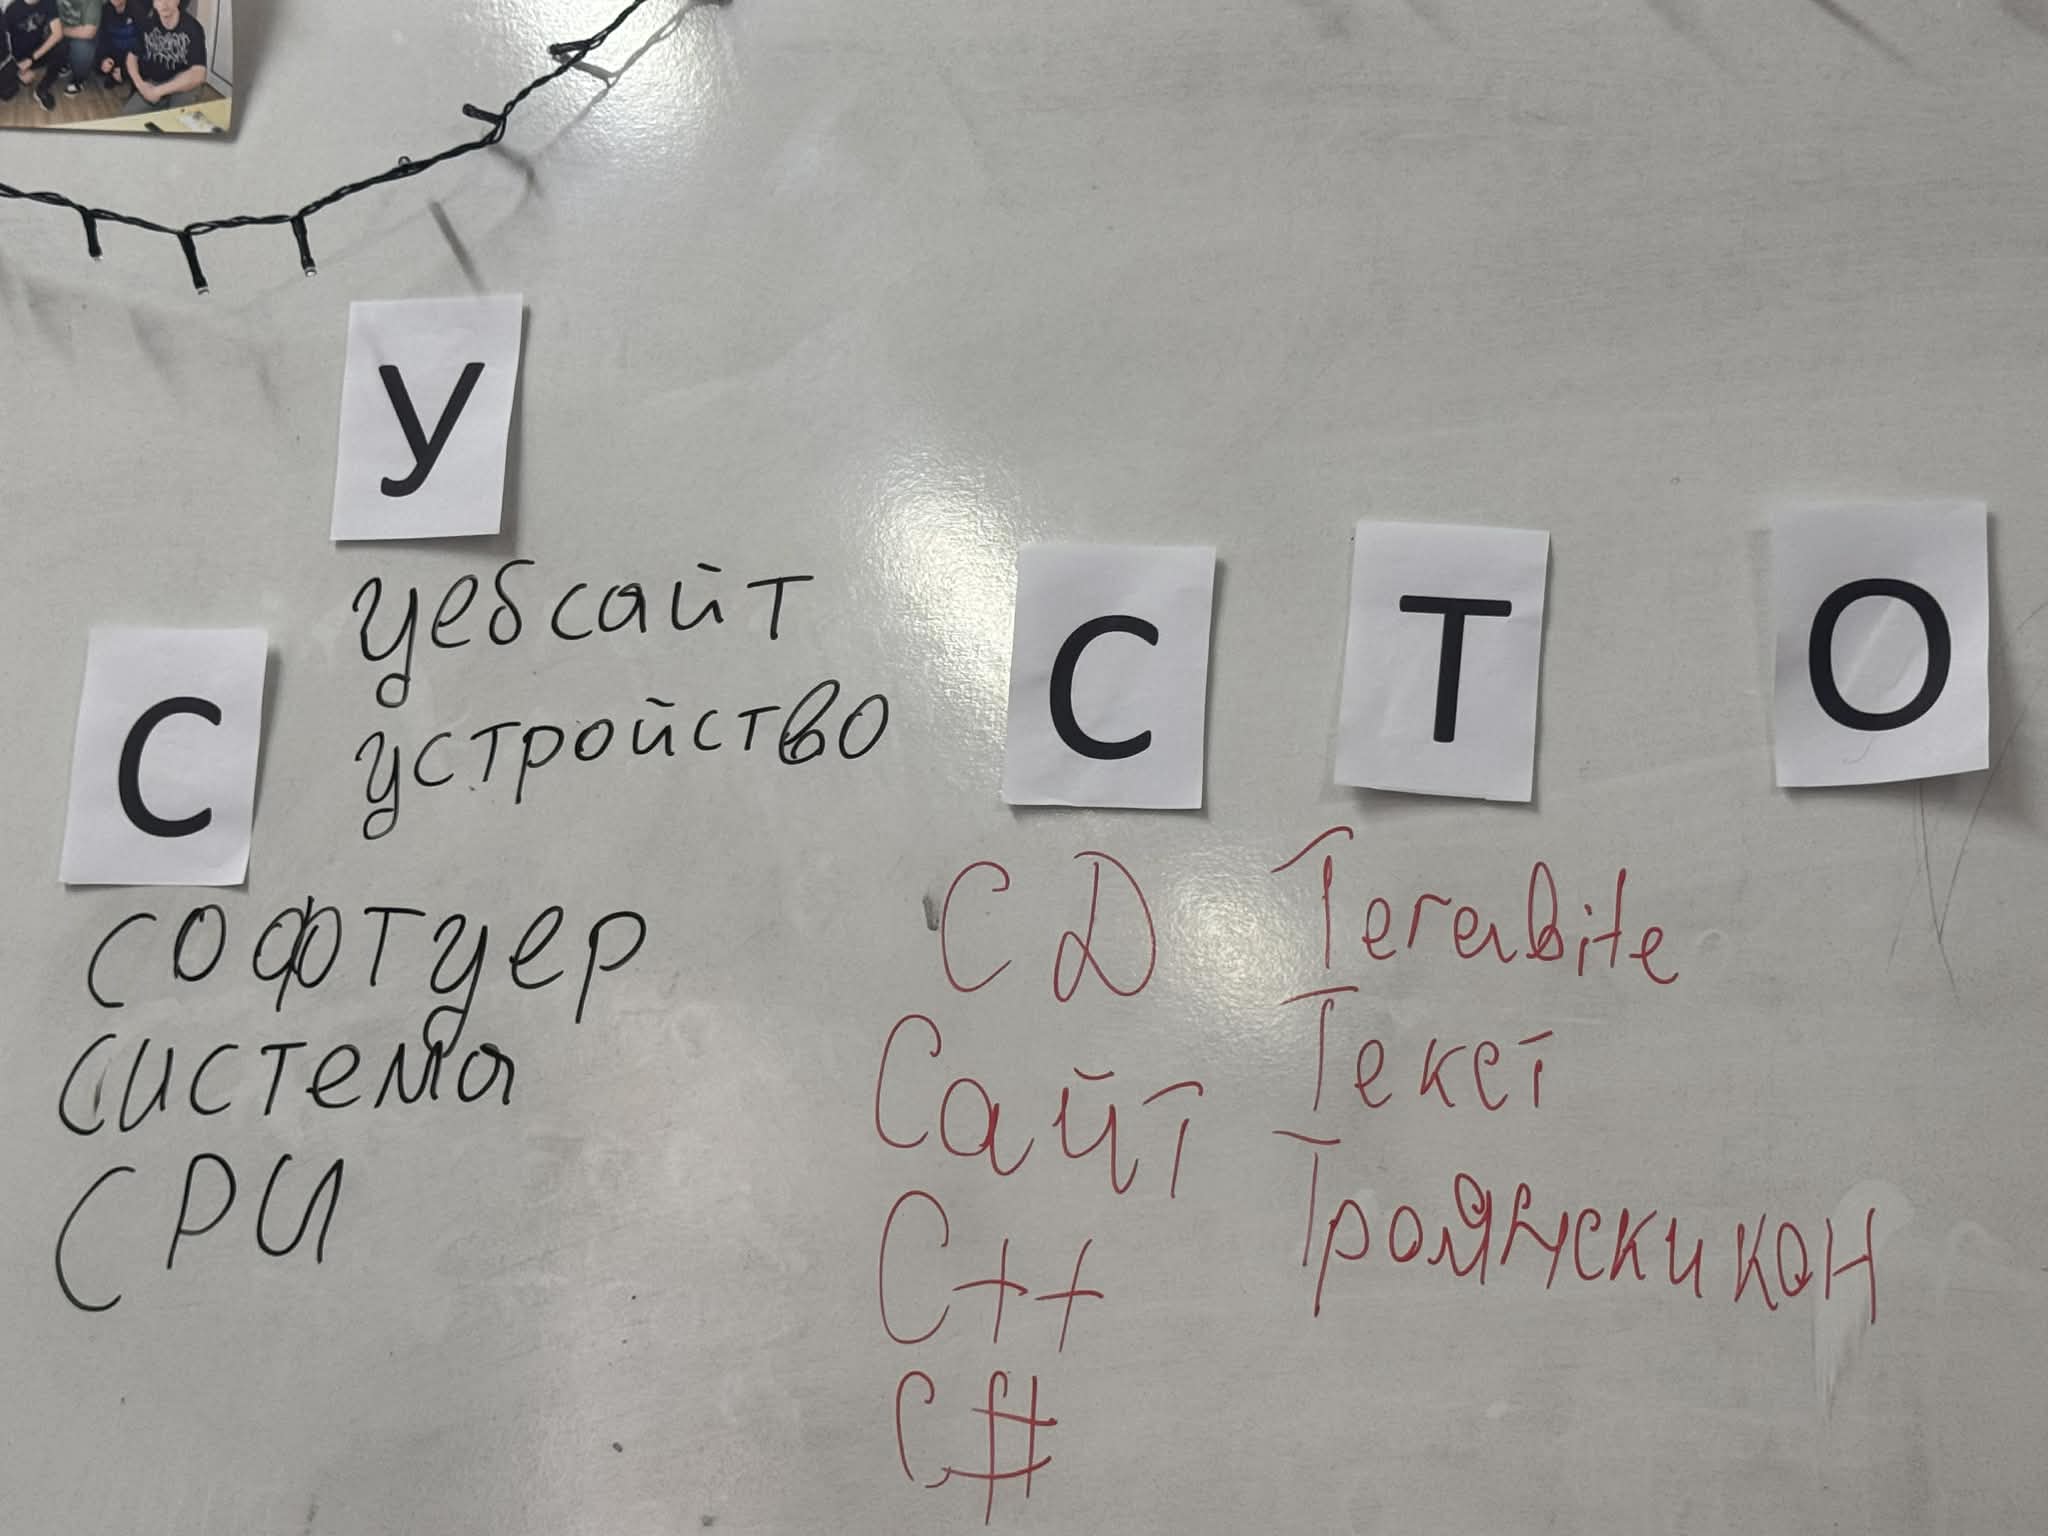 У
уебсайт
устройство
С
софтуер
система
СРИ
С
CD
Сайт
C++
C#
Т
Terabite
Текст
Троянски кон
О